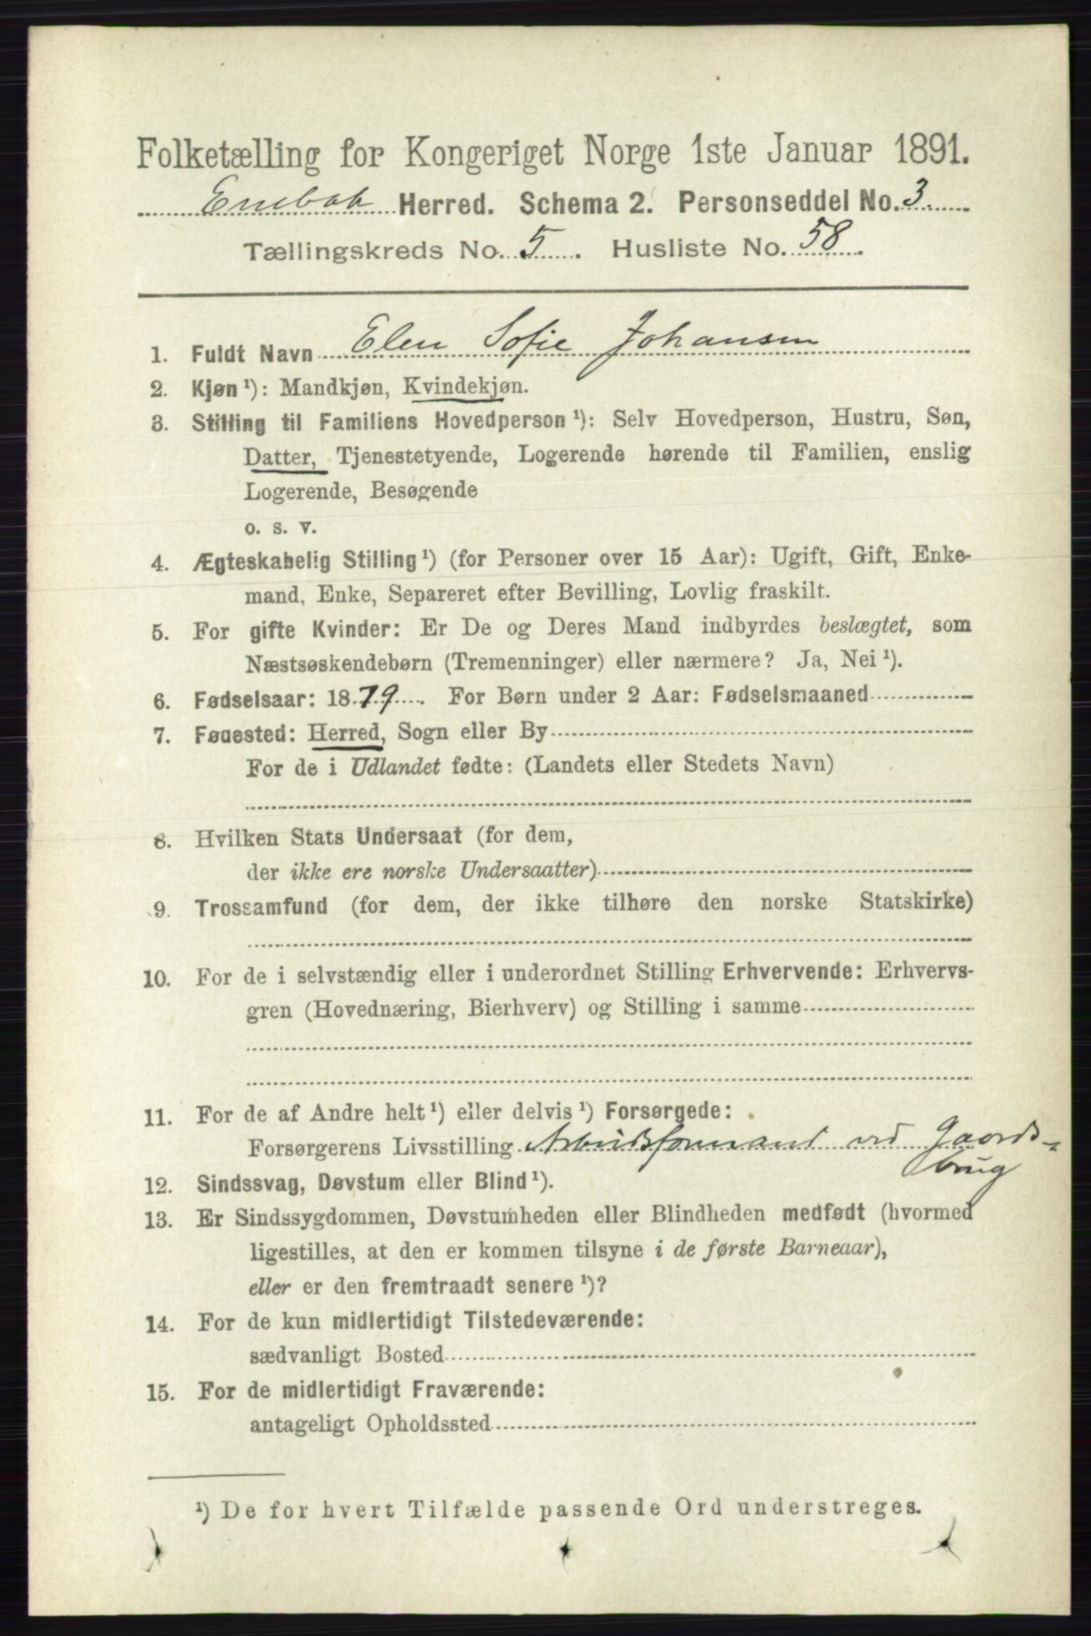 Folketælling for Kongeriget Norge 1ste Januar 1891.
Enebak Herred. Schema 2. Personseddel No. 3.
Tællingskreds No. 5. Husliste No. 58.
1. Fuldt Navn Elen Sofie Johansen
2. Kjøn ¹): Mandkjøn, Kvindekjøn.
3. Stilling til Familiens Hovedperson ¹): Selv Hovedperson, Hustru, Søn,
Datter, Tjenestetyende, Logerende hørende til Familien, enslig
Logerende, Besøgende
o. s. v.
4. Ægteskabelig Stilling ¹) (for Personer over 15 Aar): Ugift, Gift, Enke-
mand, Enke, Separeret efter Bevilling, Lovlig fraskilt.
5. For gifte Kvinder: Er De og Deres Mand indbyrdes beslægtet, som
Næstsøskendebørn (Tremenninger) eller nærmere? Ja, Nei ¹).
6. Fødselsaar: 1879. For Børn under 2 Aar: Fødselsmaaned
7. Fødested: Herred, Sogn eller By
For de i Udlandet fødte: (Landets eller Stedets Navn)
8. Hvilken Stats Undersaat (for dem,
der ikke ere norske Undersaatter)
9. Trossamfund (for dem, der ikke tilhøre den norske Statskirke)
10. For de i selvstændig eller i underordnet Stilling Erhvervende: Erhvervs-
gren (Hovednæring, Bierhverv) og Stilling i samme
11. For de af Andre helt ¹) eller delvis ¹) Forsørgede:
Forsørgerens Livsstilling Arbeidsformand ved Gaards-
brug
12. Sindssvag, Døvstum eller Blind ¹).
13. Er Sindssygdommen, Døvstumheden eller Blindheden medfødt (hvormed
ligestilles, at den er kommen tilsyne i de første Barneaar),
eller er den fremtraadt senere ¹)?
14. For de kun midlertidigt Tilstedeværende:
sædvanligt Bosted
15. For de midlertidigt Fraværende:
antageligt Opholdssted
¹) De for hvert Tilfælde passende Ord understreges.